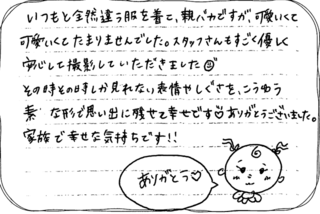 いつもと全然違う服を着て、親バカですが、可愛いくて
可愛いくてたまりませんでした。スタッフさんもすごく優しく
安心して撮影していただきました
その時その時しか見れない表情やしぐさを、こうゆう
素 な形で思い出に残せて幸せです♡ありがとうございました。
家族で幸せな気持ちです!!
ありがとう♡